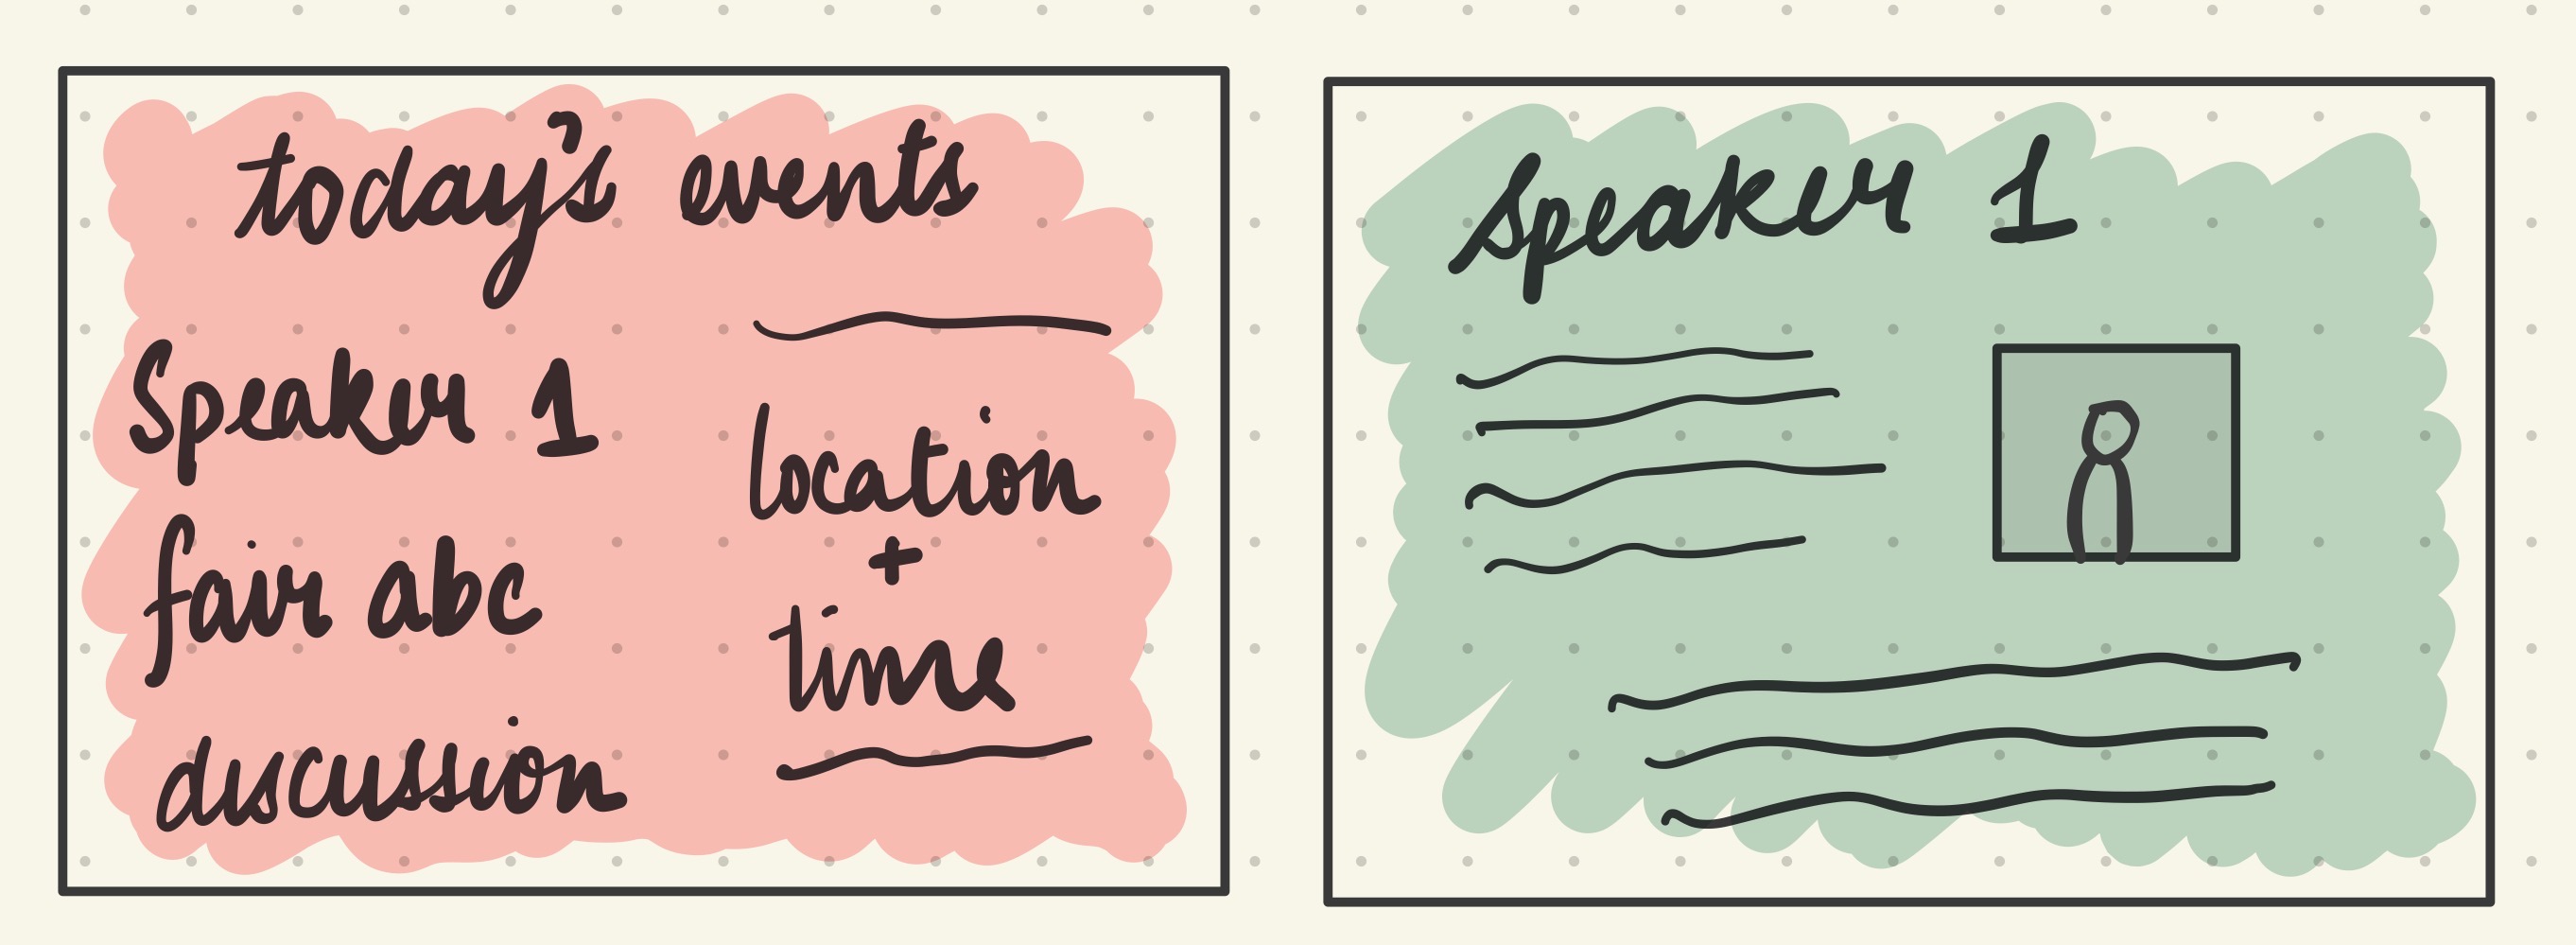 today's events
Speaker 1
fair abc
discussion
location
+
time
Speaker 1